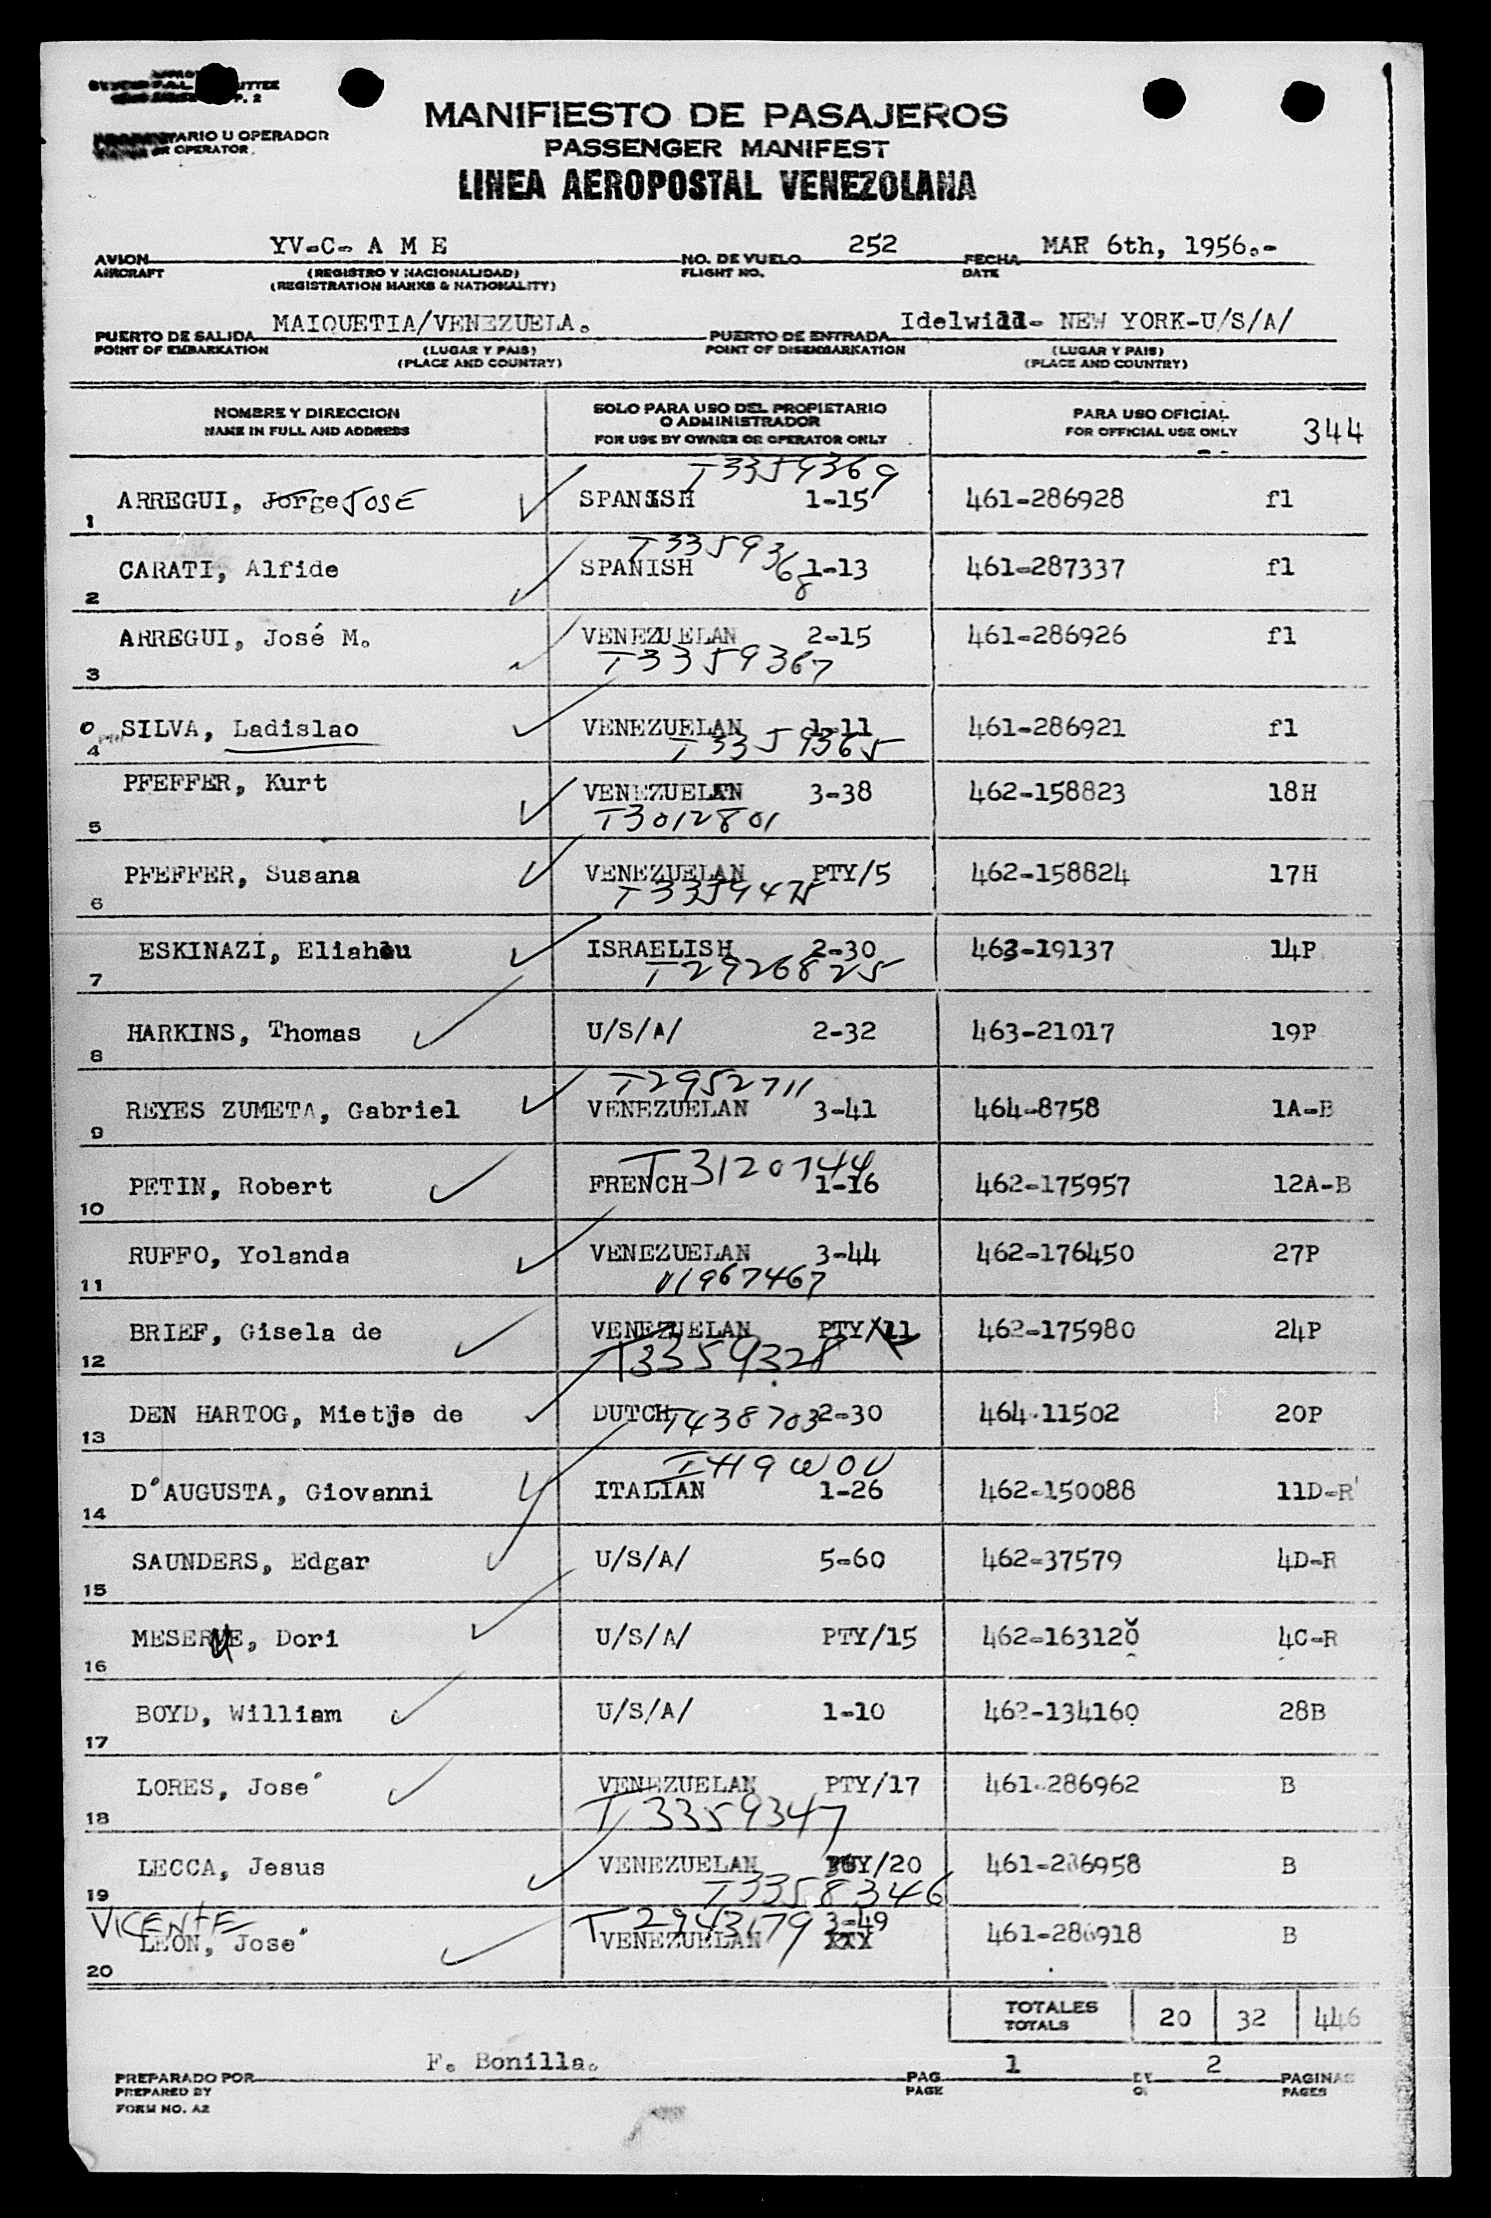 MANIFIESTO DE PASAJEROS
PASSENGER MANIFEST
LINEA AEROPOSTAL VENEZOLANA
U OPERADOR
OR OPERATOR
YV-C- A M E 252 MAR 6th, 1956.-
AVION NO. DE VUELO FECHA
AIRCRAFT (REGISTRO Y NACIONALIDAD) FLIGHT NO. DATE
(REGISTRATION MARKS & NATIONALITY)
MAIQUETIA/VENEZUELA. Idelwill- NEW YORK-U/S/A/
PUERTO DE SALIDA PUERTO DE ENTRADA
POINT OF EMBARKATION (LUGAR Y PAIS) POINT OF DISEMBARKATION (LUGAR Y PAIS)
(PLACE AND COUNTRY) (PLACE AND COUNTRY)
NOMBRE Y DIRECCION SOLO PARA USO DEL PROPIETARIO PARA USO OFICIAL
O ADMINISTRADOR
NAME IN FULL AND ADDRESS FOR USE BY OWNER OR OPERATOR ONLY FOR OFFICIAL USE ONLY 344
T3359369
1 ARREGUI, Jorge JOSE SPANISH 1-15 461-286928 f1
T3359368
2 CARATI, Alfide SPANISH 1-13 461-287337 f1
3 ARREGUI, José M. VENEZUELAN 2-15 461-286926 f1
T3359367
4 SILVA, Ladislao VENEZUELAN 1-11 461-286921 f1
T3359365
5 PFEFFER, Kurt VENEZUELAN 3-38 462-158823 18H
T3012801
6 PFEFFER, Susana VENEZUELAN PTY/5 462-158824 17H
7 ESKINAZI, Eliahou ISRAELISH 2-30 463-19137 14P
T2926825
8 HARKINS, Thomas U/S/A/ 2-32 463-21017 19P
T2952711
9 REYES ZUMETA, Gabriel VENEZUELAN 3-41 464-8758 1A-B
T3120744
10 PETIN, Robert FRENCH 1-16 462-175957 12A-B
11 RUFFO, Yolanda VENEZUELAN 3-44 462-176450 27P
12 BRIEF, Gisela de VENEZUELAN PTY/11 462-175980 24P
T3359328
13 DEN HARTOG, Mietje de DUTCH T438703 2-30 464-11502 20P
14 D'AUGUSTA, Giovanni ITALIAN 1-26 462-150088 11D-R
15 SAUNDERS, Edgar U/S/A/ 5-60 462-37579 4D-R
16 MESERVE, Dori U/S/A/ PTY/15 462-163120 4C-R
17 BOYD, William U/S/A/ 1-10 462-134160 28B
18 LORES, Jose´ VENEZUELAN PTY/17 461-286962 B
T3359347
19 LECCA, Jesus VENEZUELAN PTY/20 461-286958 B
T3358346
VICENTE T2943179 3-49
20 LEON, Jose´ VENEZUELAN XXX 461-286918 B
TOTALES 20 32 446
TOTALS
F. Bonilla. 1 2
PREPARADO POR PAG. DE PAGINAS
PREPARED BY PAGE OF PAGES
FORM NO. A2